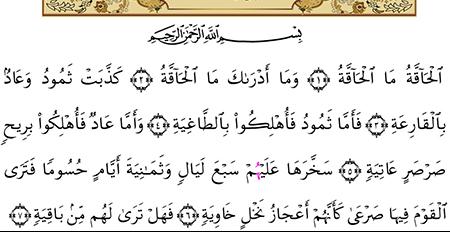 بِسْمِ ٱللَّهِ ٱلرَّحْمَٰنِ ٱلرَّحِيمِ
ٱلْحَآقَّةُ مَا ٱلْحَآقَّةُ ﴿١﴾ وَمَآ أَدْرَىٰكَ مَا ٱلْحَآقَّةُ ﴿٢﴾ كَذَّبَتْ ثَمُودُ وَعَادُۢ
بِٱلْقَارِعَةِ ﴿٣﴾ فَأَمَّا ثَمُودُ فَأُهْلِكُوا۟ بِٱلطَّاغِيَةِ ﴿٤﴾ وَأَمَّا عَادٌ فَأُهْلِكُوا۟ بِرِيحٍ
صَرْصَرٍ عَاتِيَةٍ ﴿٥﴾ سَخَّرَهَا عَلَيْهُمْ سَبْعَ لَيَالٍ وَثَمَٰنِيَةَ أَيَّامٍ حُسُومًا فَتَرَى
ٱلْقَوْمَ فِيهَا صَرْعَىٰ كَأَنَّهُمْ أَعْجَازُ نَخْلٍ خَاوِيَةٍ ﴿٦﴾ فَهَلْ تَرَىٰ لَهُم مِّنۢ بَاقِيَةٍ ﴿٧﴾